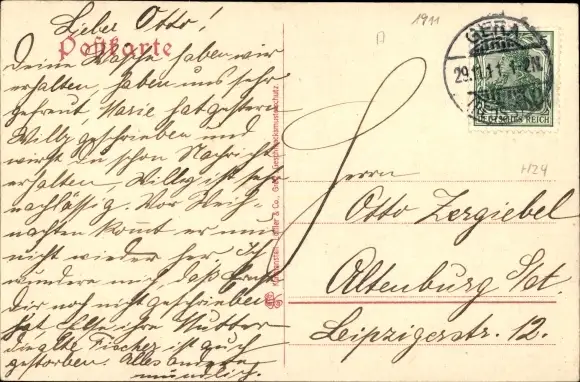 Lieber Otto!
Postkarte
Deine Wäsche haben wir
erhalten, haben uns sehr
gefreut, Marie hat gestern
Willy geschrieben und
wirst Du schon Nachricht
erhalten, Willy ist sehr
nachlässig. Vor Weih-
nachten kommt er nun
nicht wieder her. Ich
wundere mich, daß
Dir noch nicht geschrieben
hat ihre Mutter
die alte Fischer ist auch
gestorben. Alles andere
mündlich.
1911
GERA
29.11.11. 1-2N
DEUTSCHES REICH
H24
Herrn
Otto Zergiebel
Altenburg
Leipzigerstr. 12.